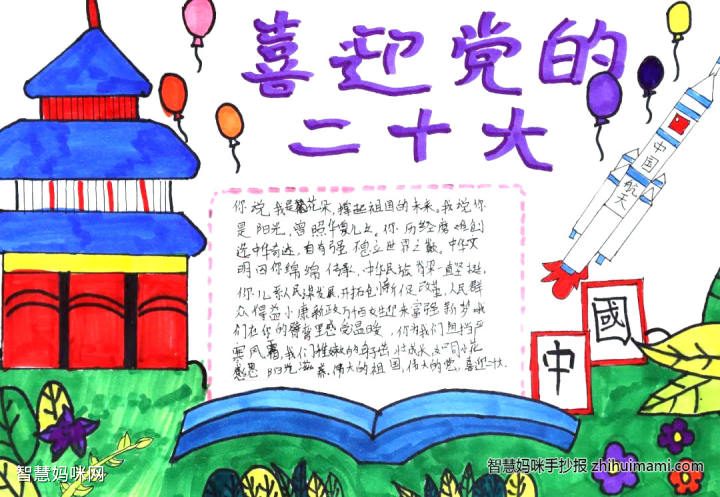 喜迎党的
二十大
中国航天
你说,我是花朵,撑起祖国的未来,我说你
是阳光,普照华夏儿女。你历经磨难创
造中华奇迹,自有强 屹立世界之巅。中华文
明因你绵绵传承,中华民族脊梁坚挺,
你儿系人民谋发展,开拓创新促改革,人民群
众得益小康
们在你的臂膀里感受温暖,你为我们阻挡严
寒风霜,我们稚嫩的茁壮成长,
感恩阳光滋养,伟大的祖国,伟大的党,喜迎二十大.
國
中
智慧妈咪网
智慧妈咪手抄报 zhihuimami.com